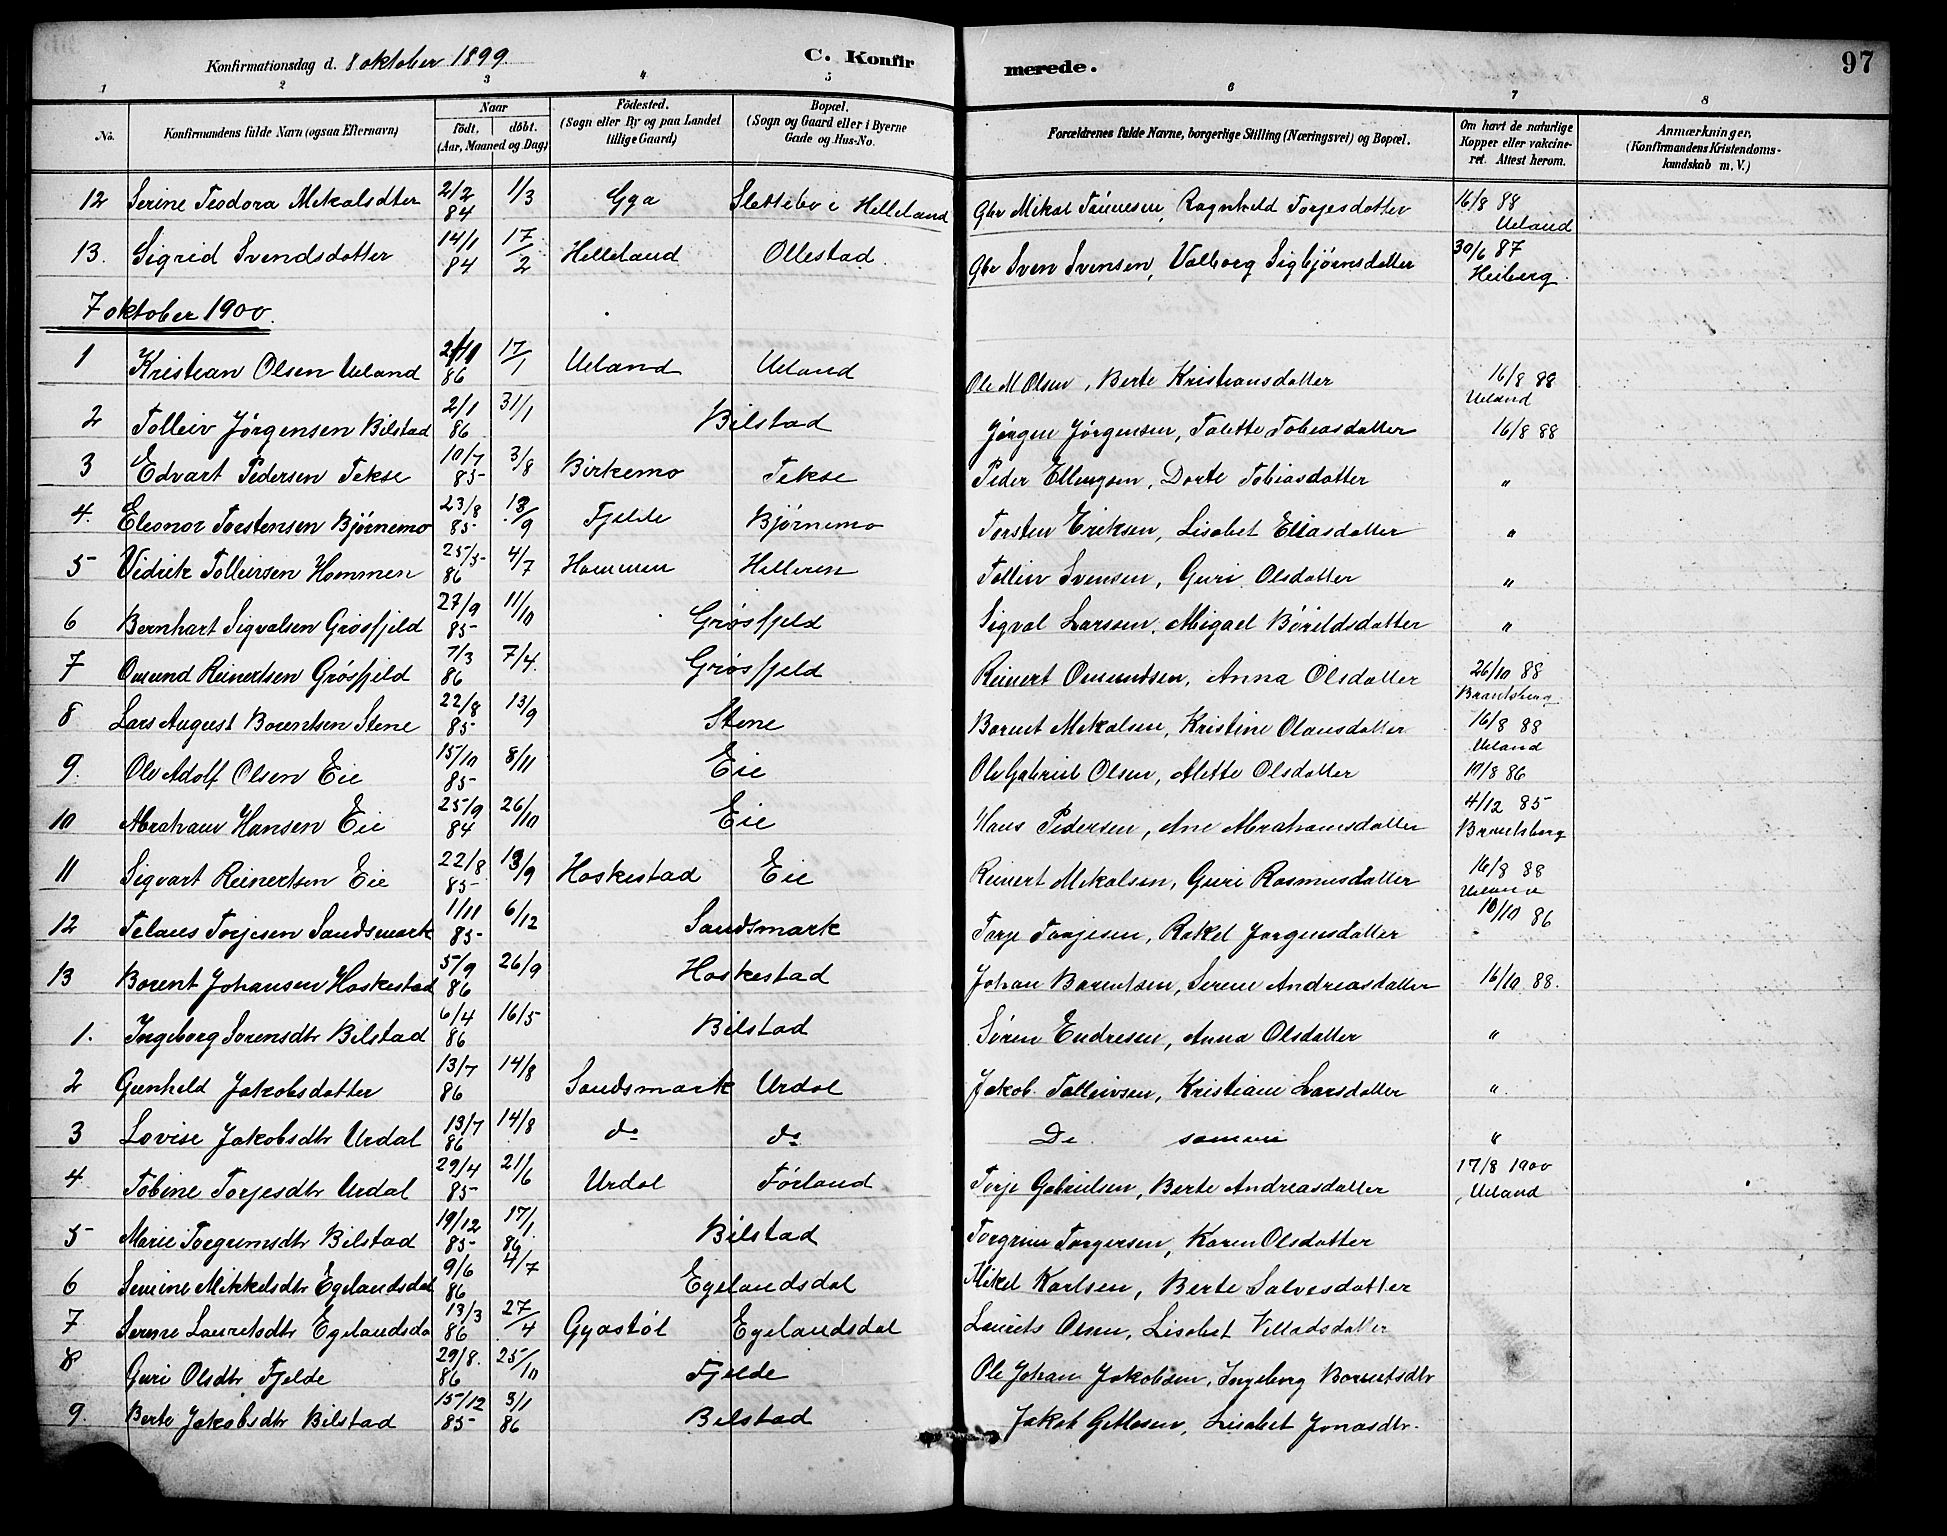 Konfirmationsdag d. 8 oktober 1899. C. Konfirmerede. 97
1 2 3 4 5 6 7 8
No. Konfirmandens fulde Navn (ogsaa Efternavn) Naar födt, döbt. (Aar, Maaned og Dag) Födested. (Sogn eller By og paa Landet tillige Gaard) Bopæl. (Sogn og Gaard eller i Byerne Gade og Hus-No. Forældrenes fulde Navne, borgerlige Stilling (Næringsvei) og Bopæl. Om havt de naturlige Kopper eller vakcineret. Attest herom. Anmærkninger, (Konfirmandens Kristendomskundskab m. V.)
12 Serine Teodora Mikalsdtter 2/2 84 1/3 Gya Slettebø i Helleland Gbr Mikal Tønnesen, Ragnhild Torjesdatter 16/8 88 Ueland
13. Sigrid Svendsdatter 14/1 84 17/2 Helleland Ollestad. Gbr Sven Svensen, Valborg Sigbjørnsdatter 30/6 87 Heiberg.
7 oktober 1900.
1 Kristian Olsen Ueland 86 17/1 Ueland Ueland Ole M Olsen, Berte Kristiansdatter 16/8 88 Ueland
2 Tolleiv Jørgensen Bilstad 2/1 86 31/1 Bilstad Jørgen Jørgensen, Talette Tobiasdatter 16/8 88
3 Edvart Pedersen Tekse 10/7 85 3/8 Birkemo Tekse Peder Ellingsen, Dorte Tobiasdatter "
4. Eleonor Torstensen Bjørnemo 23/8 85 13/9 Fjelde Bjørnemo Torsten Eriksen, Lisabet Eliasdatter "
5 Vidrik Tolleivsen Hommen 25/5 86 4/7 Hommen Helleren Tolleiv Svensen, Guri Olsdatter "
6 Bernhart Sigvalsen Grøsfjeld 27/9 85 11/10 Grøsfjeld Sigval Larsen, Abigael Bårildsdatter "
7 Omund Reinertsen Grøsfjeld 7/3 86 7/4. Grøsfjeld Reinert Omundsen, Anna Olsdatter 26/10 88 Brantsberg
8 Lars August Borentsen Stene 22/8 85 13/9 Stene Borent Mikalsen, Kristine Olausdatter 16/8 88 Ueland
9. Ole Adolf Olsen Eie 15/10 85 8/11 Eie Ole Gabriel Olsen, Alette Olsdatter 19/8 86
10 Abraham Hansen Eie 25/9 84 26/10 Eie Hans Pedersen, Ane Abrahamsdatter 4/12 85 Brantsberg
11 Sigvart Reinertsen Eie 22/8 85 13/9 Hoskestad Eie Reinert Mikalsen, Guri Rasmusdatter 16/8 88 Ueland
12 Telaus Torjesen Sandsmark 1/11 85 6/12 Sandsmark Torje Torjesen, Rakel Jørgensdatter 10/10 86
13 Borent Johansen Hoskestad 5/9 86 26/9 Hoskestad Johan Barentsen, Serine Andreasdatter 16/10 88.
1. Ingeborg Sørensdtr Bilstad 6/4 86 16/5 Bilstad Søren Endresen, Anna Olsdatter "
2 Gunhild Jakobsdatter 13/7 86 14/8 Sandsmark Urdal Jakob Tolleivsen, Kristiane Larsdatter "
3 Lovise Jakobsdtr Urdal 13/7 86 14/8 do do De samme "
4 Tobine Torjesdtr Urdal 29/4 85 21/6 Urdal Førland Torje Gabrielsen, Berte Andreasdatter 17/8 1900, Ueland
5 Marie Torgrimsdtr Bilstad 19/12 85 17/1. 86 Bilstad Torgrim Torgersen, Karen Olsdatter
6 Semine Mikkelsdtr Egelandsdal 9/6 86 4/7 Egelandsdal Mikel Karlsen, Berte Salvesdatter
7 Serine Lauritsdtr Egelandsda 13/3 86 27/4 Gyastøl Egelandsdal Laurits Olsen, Lisabet Villadsdatter
8 Guri Olsdtr Fjelde 29/8. 86 25/10 Fjelde Ole Johan Jakobsen, Ingeborg Borentsdtr
9. Berte Jakobsdtr Bilstad 15/12 85 3/1 86 Bilstad Jakob Getlesen, Lisabet Jonasdtr.